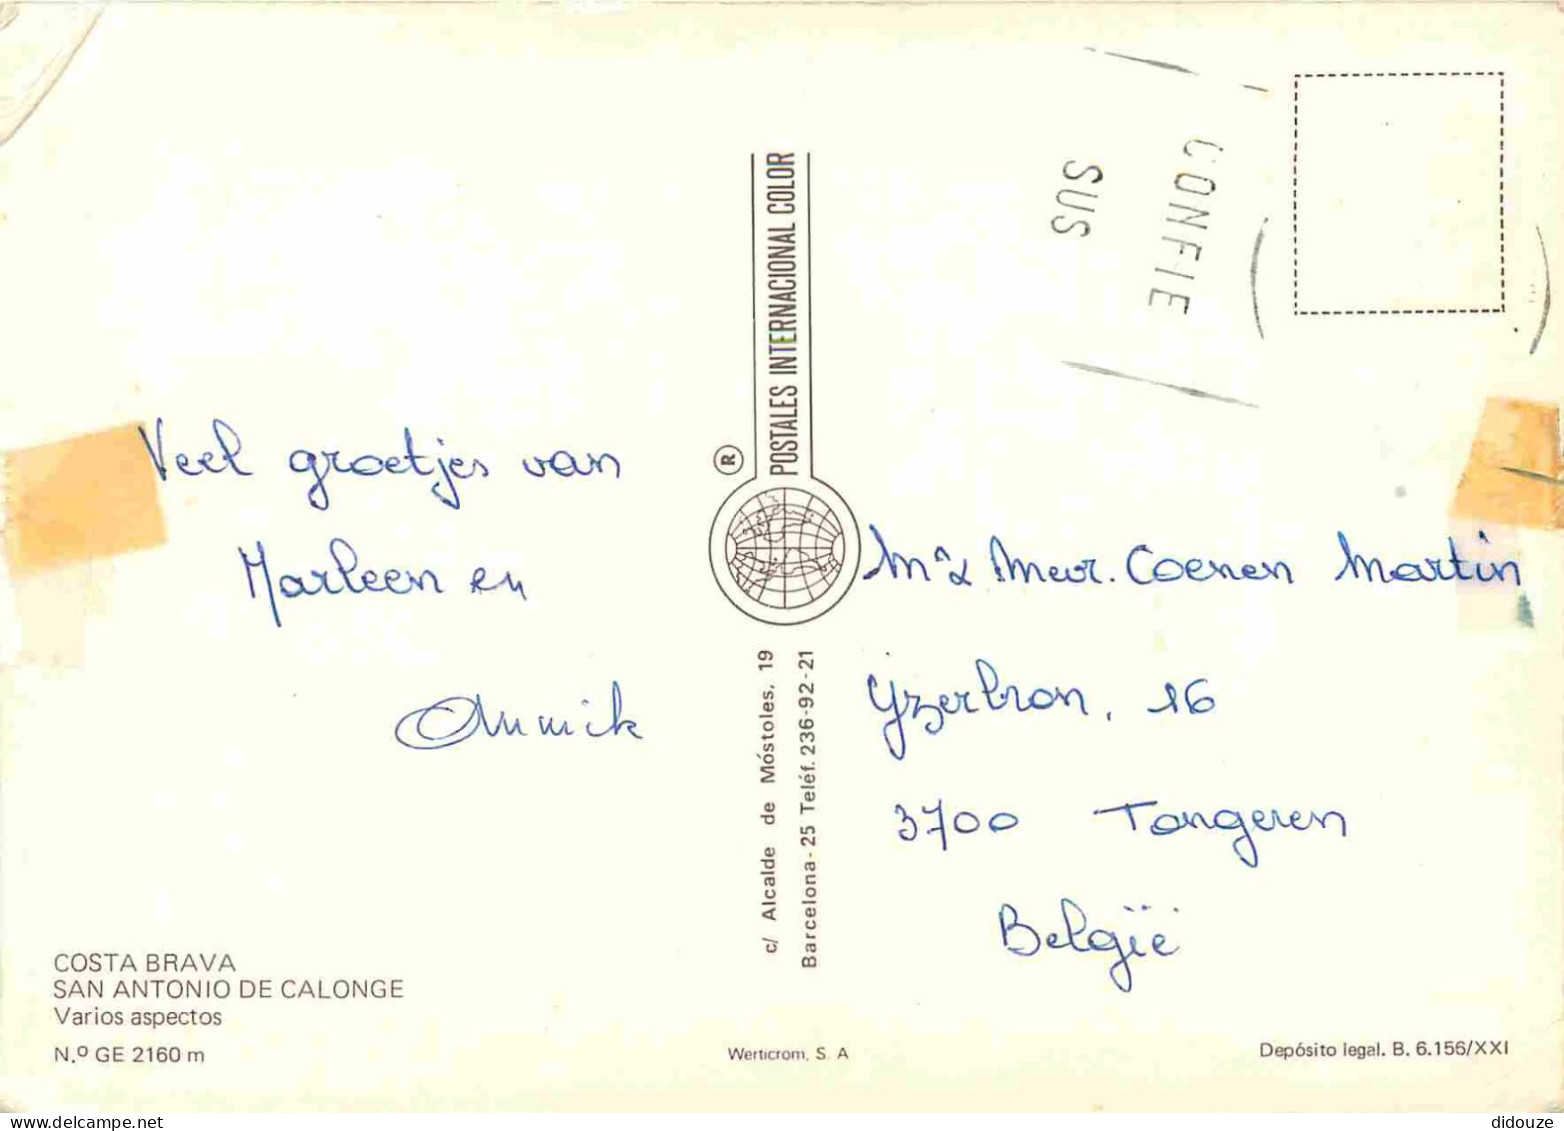 CONFIE
SUS
POSTALES INTERNACIONAL COLOR
R
Veel groetjes van
Marleen en
Annick
Mr & Mevr. Coenen Martin
Yzerbron, 16
3700 Tongeren
België
c/ Alcalde de Móstoles, 19
Barcelona-25 Teléf. 236-92-21
COSTA BRAVA
SAN ANTONIO DE CALONGE
Varios aspectos
N.º GE 2160 m
Werticrom, S. A
Depósito legal. B. 6.156/XXI
delcampe.net
didouze